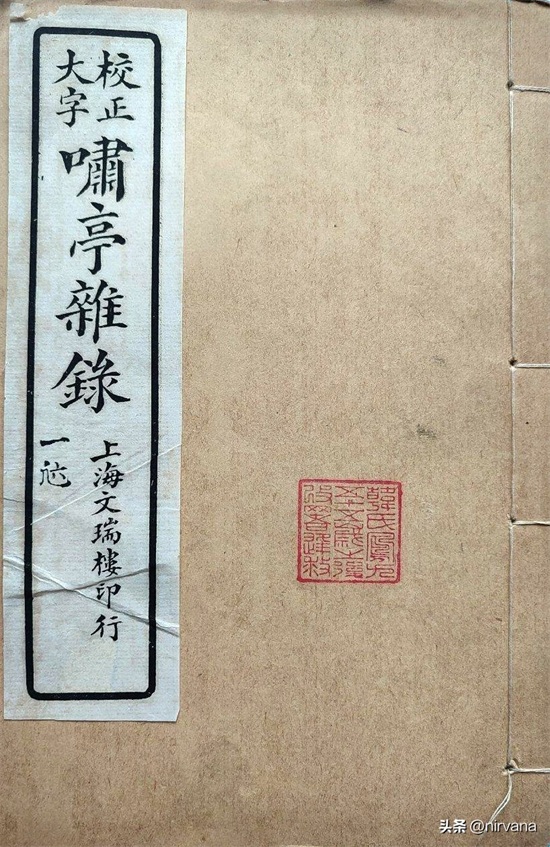 校正
大字
嘯亭雜錄
上海文瑞樓印行
一
韓氏鳳九
头条 @nirvana